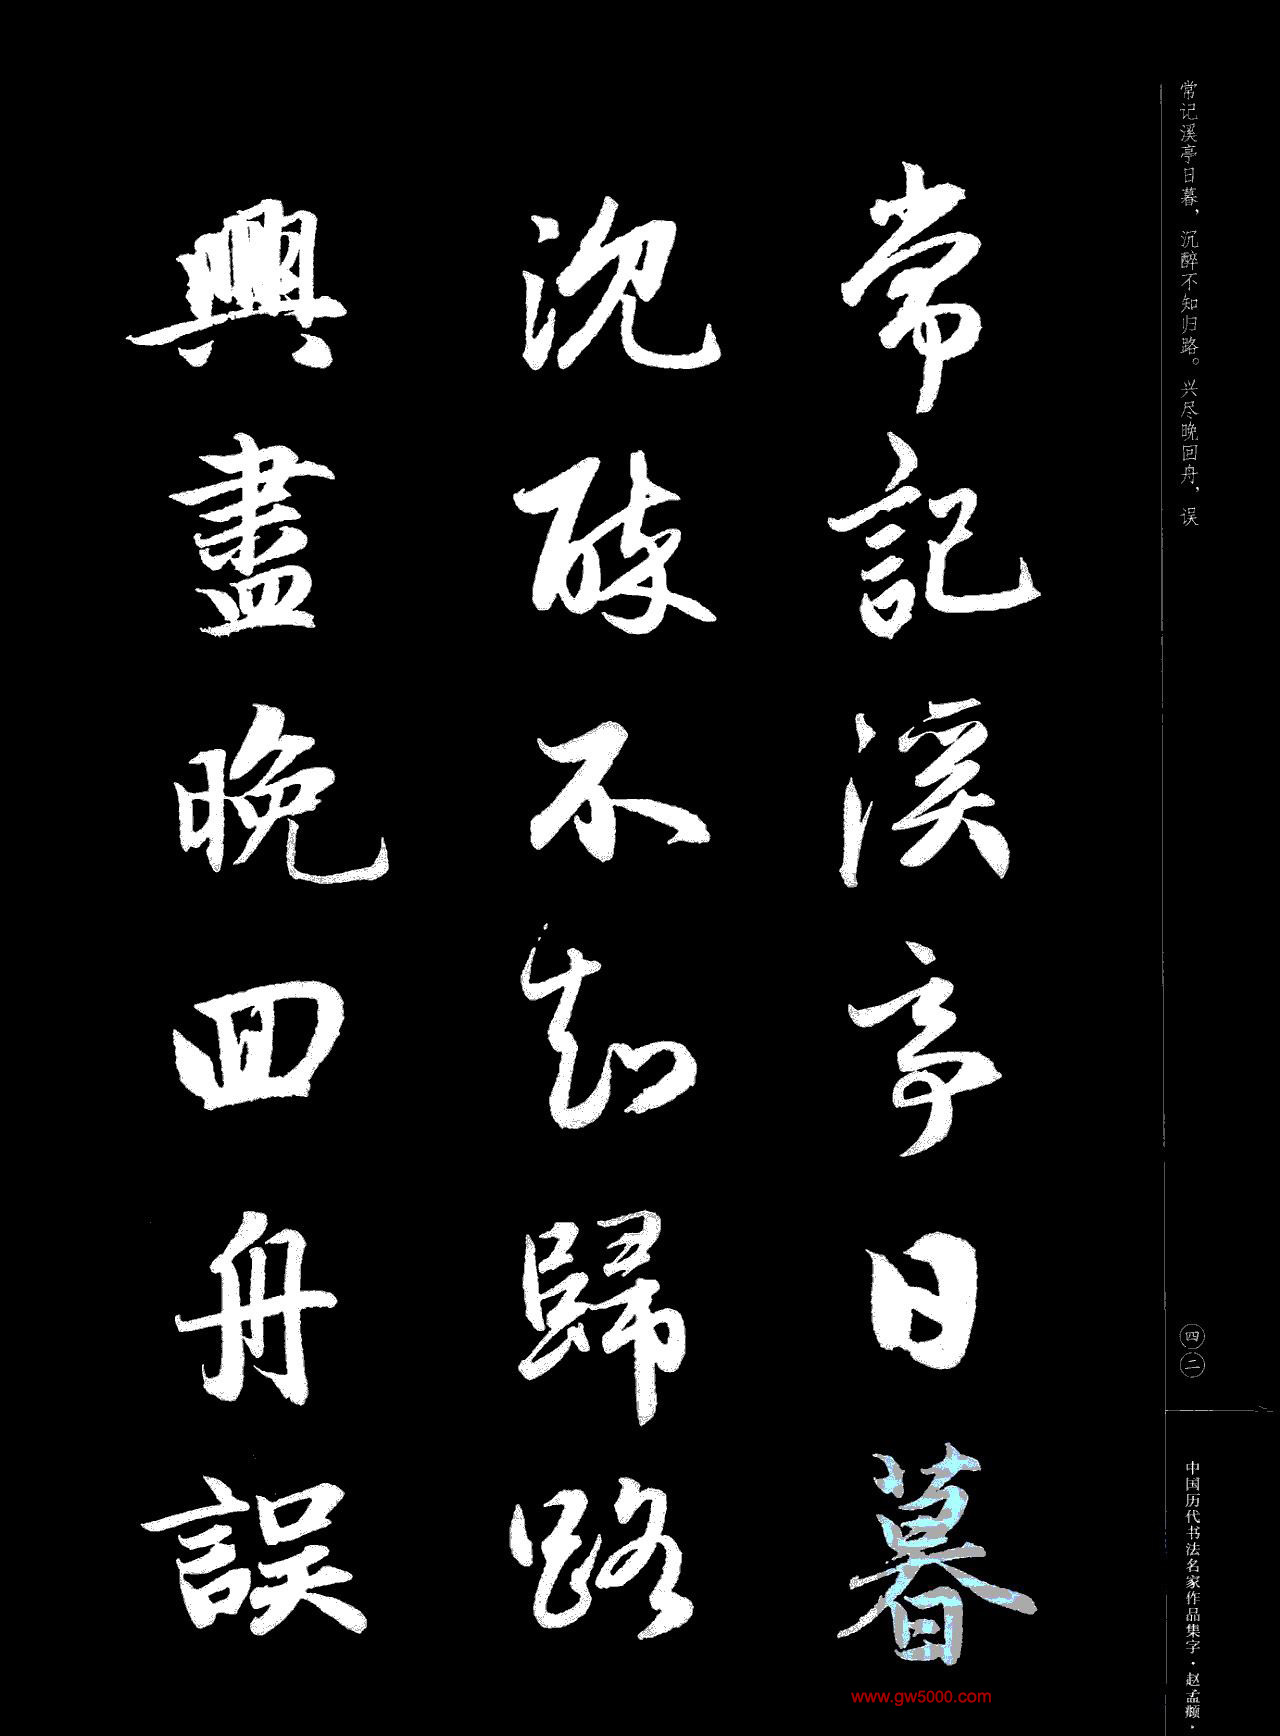 常记溪亭日暮，沉醉不知归路。兴尽晚回舟，误
常記溪亭日暮
沉醉不知歸路
興盡晚回舟誤
四二
中国历代书法名家作品集字·赵孟頫·
www.gw5000.com